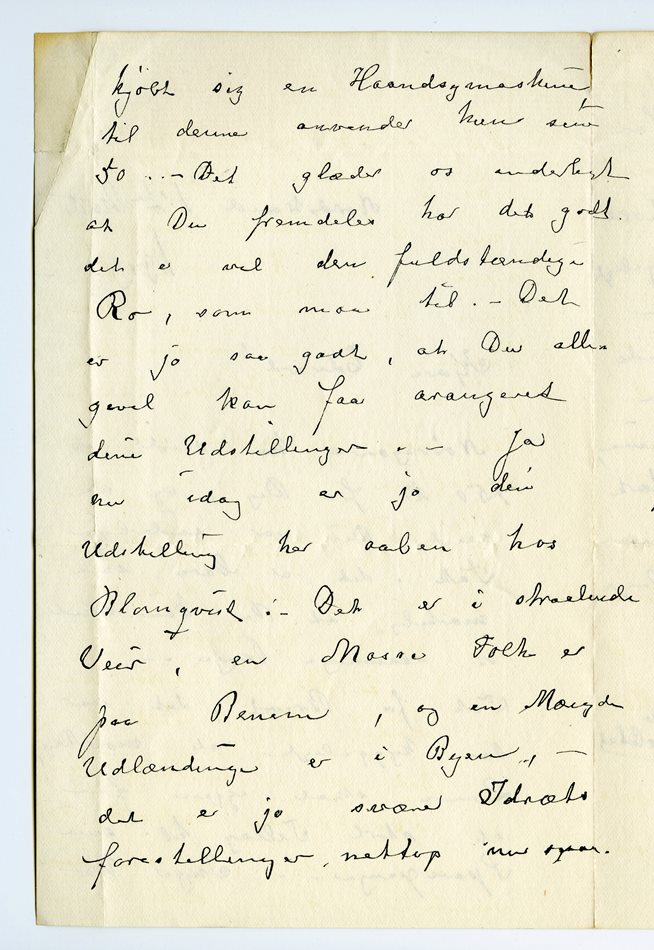 kjöbt sig en Haandsymaskine
til denne anvender hun sine
50 .. – Det glæder os inderligt
at Du fremdeles har det godt.
det er vel den fuldstændige
Ro, som maa til. – Det
er jo saa godt, at Du alli=
gevel kan faa arangeret
dine Udstillinger. – Ja
nu idag er jo din
Udstilling her aaben hos
Blomqvist :– Det er i straalende
Veir, en Masse Folk er
paa Benene, og en Mængde
Udlændinge er i Byen, –
det er jo svære Idræts
forestillinger, nettop nu